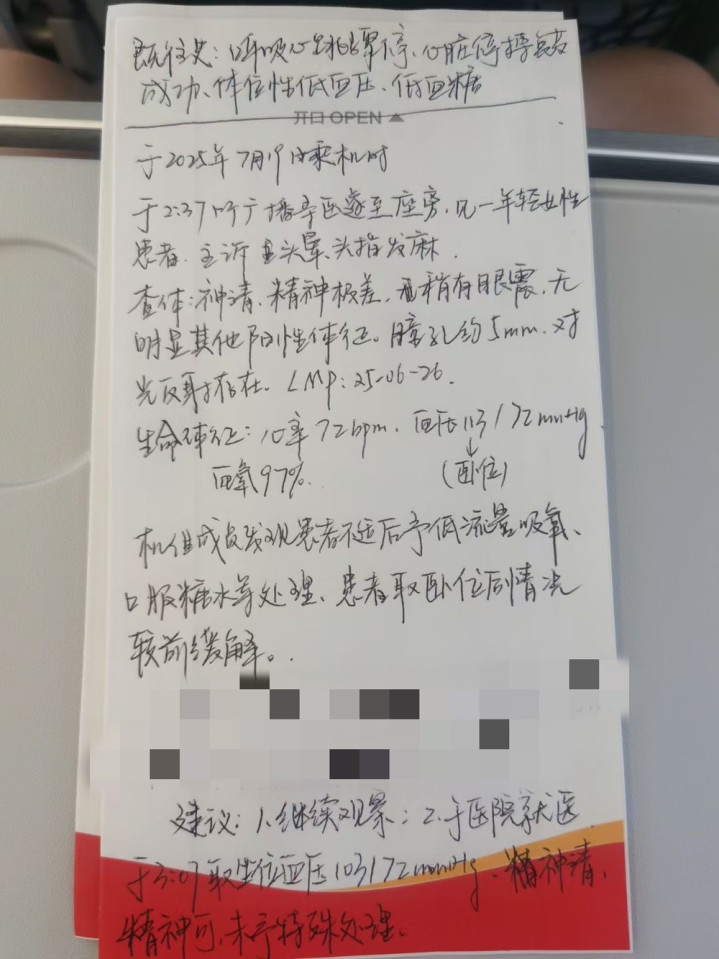 既往史：呼吸心跳骤停、心脏停搏复苏
成功、体位性低血压、低血糖
开口 OPEN
于2025年7月19日乘机时
于2:37听广播寻医遂至座旁，见一年轻女性
患者，主诉头晕、头指发麻．
查体：神清，精神极差，稍有眼震，无
明显其他阳性体征。瞳孔约5mm．对
光反射存在．LMP：25-06-26．
生命体征：心率72bpm．血压113/72mmHg
血氧97%．
(卧位)
机组成员发现患者不适后予低流量吸氧、
口服糖水等处理、患者取卧位后情况
较前缓解。
建议：1.继续观察；2.于医院就医
于3:07取坐位血压103/72mmHg、精神清，
精神可，未予特殊处理．